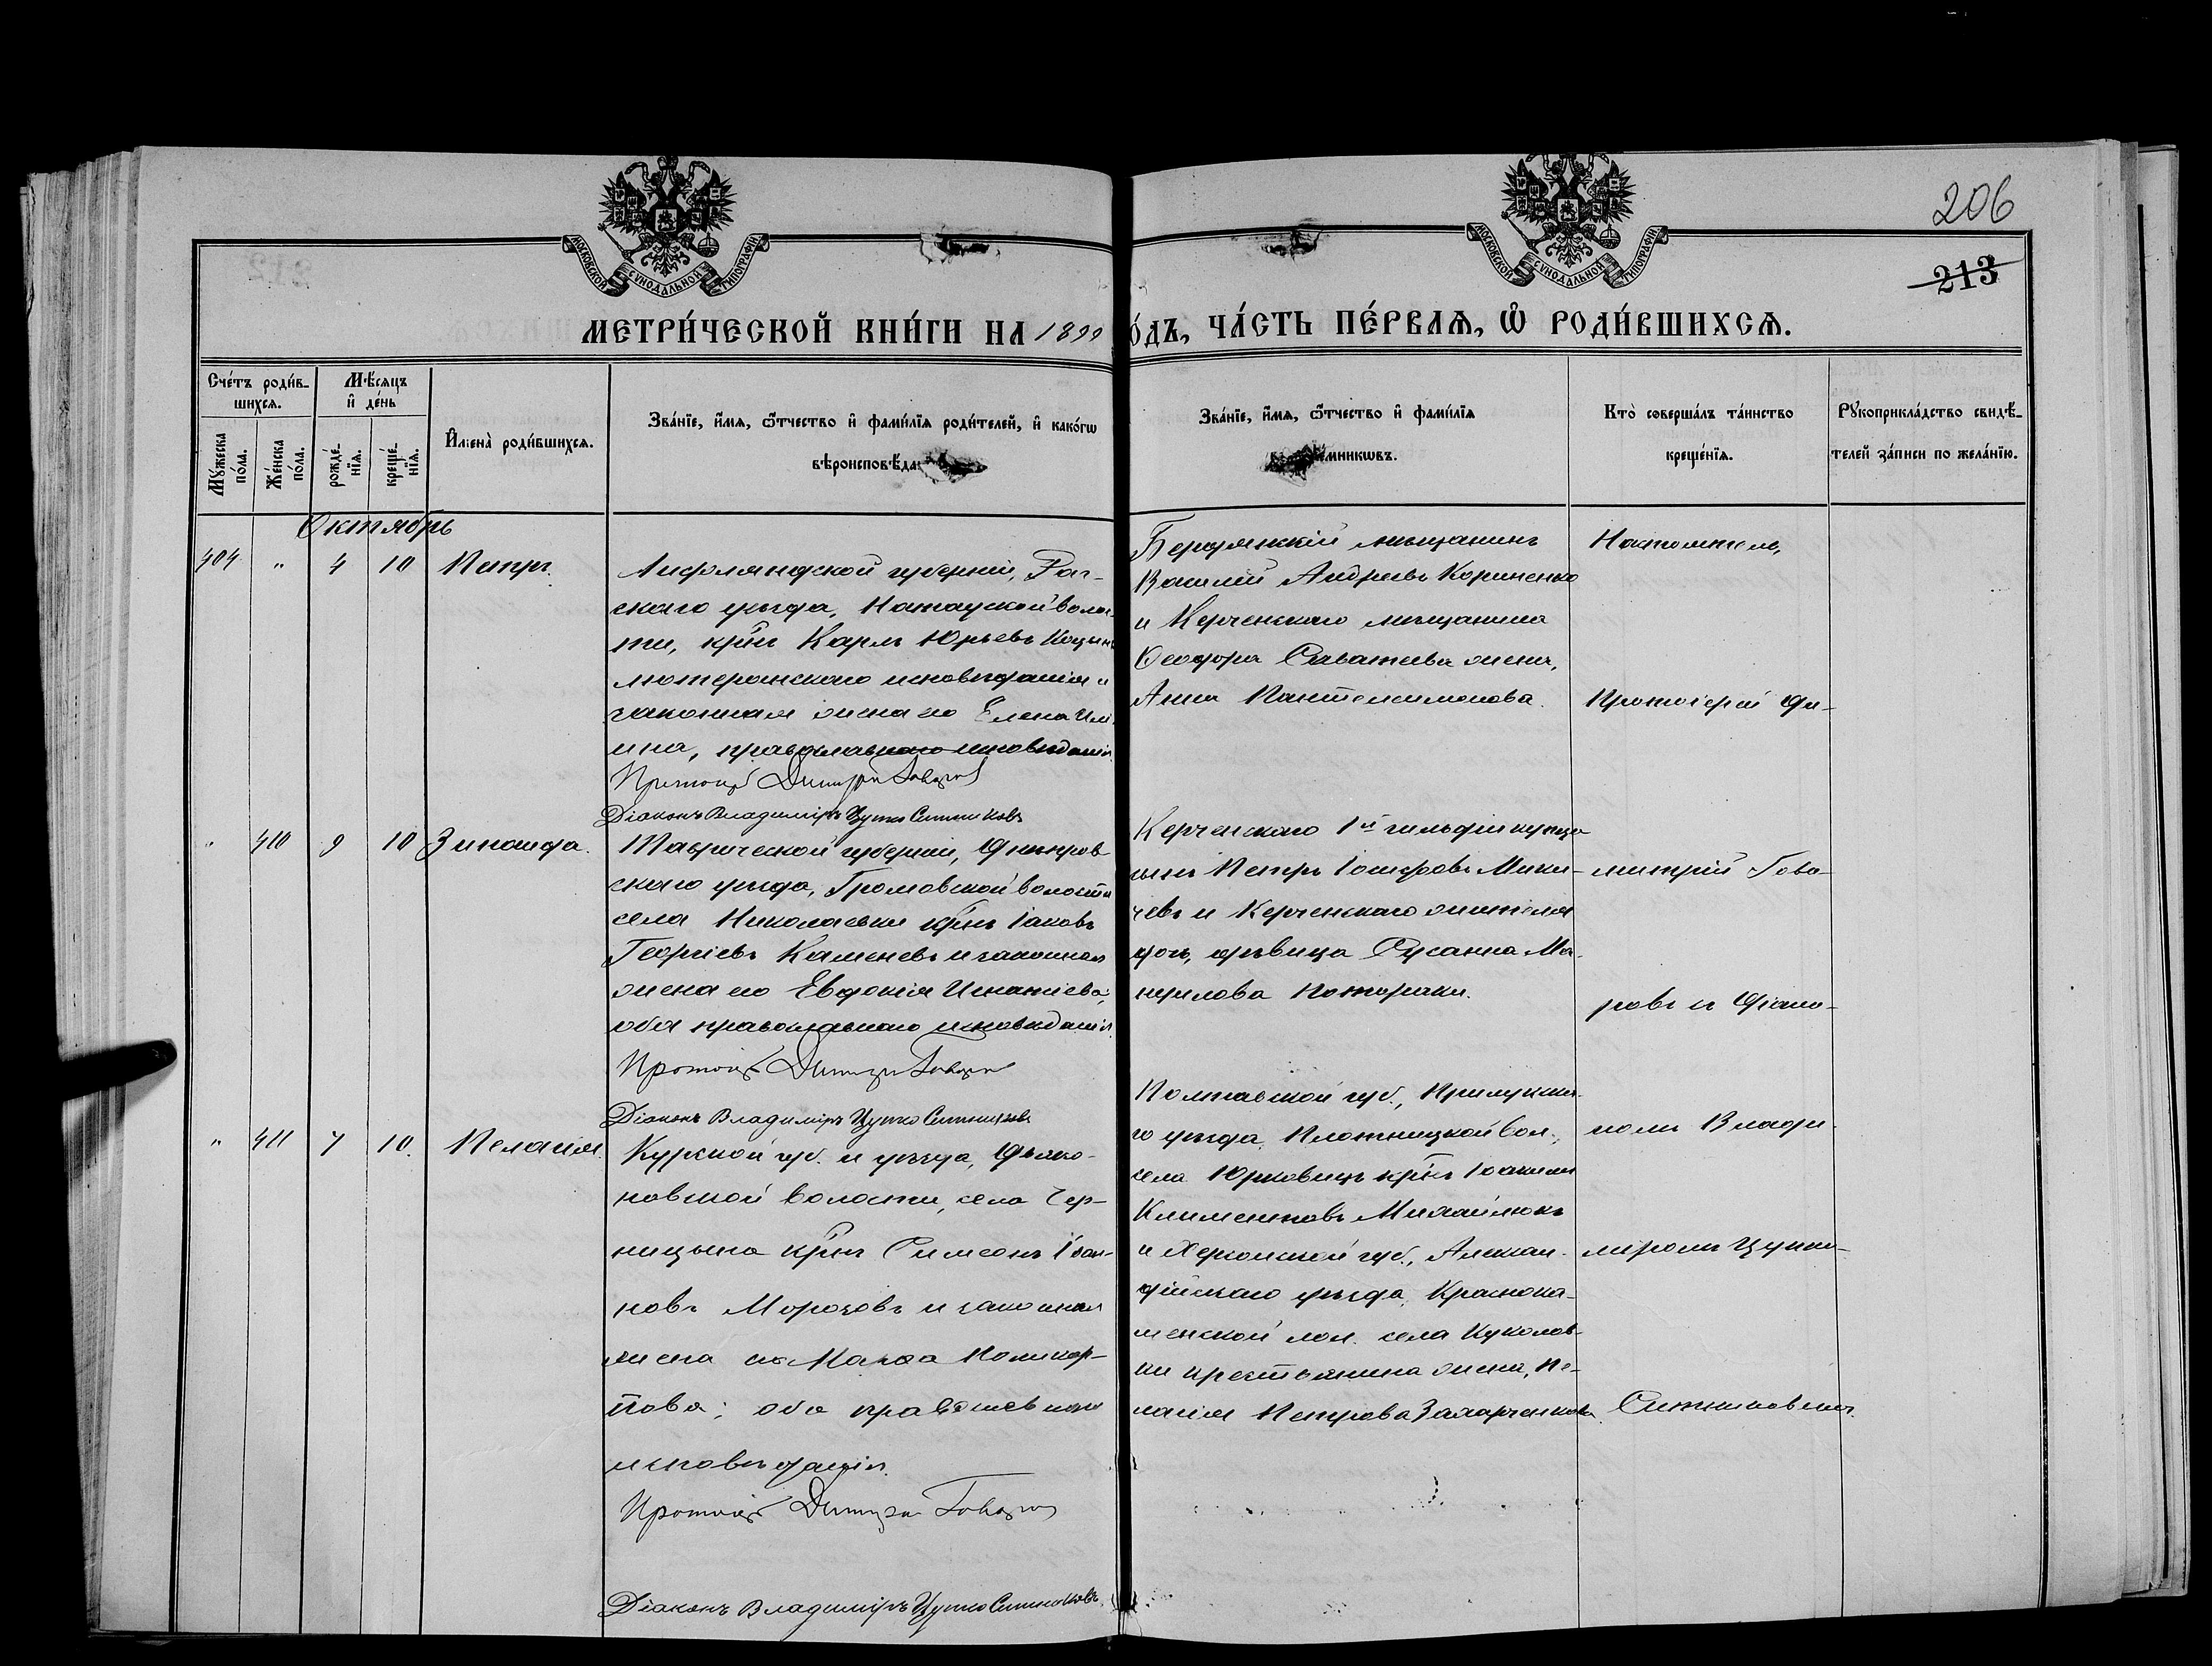 206
213
МОСКОВСКОЙ СѴНОДАЛЬНОЙ ТИПОГРАФІИ
МОСКОВСКОЙ СѴНОДАЛЬНОЙ ТИПОГРАФІИ
МЕТРИ́ЧЕСКОЙ КНИ́ГИ НА 1899
О́ДЪ, ЧА́СТЬ ПЕ́РВАѦ, Ѿ РОДИ́ВШИХСѦ.
Сче́тъ роди́в-
шихсѧ.
Мꙋ́жеска по́ла.
Же́нска по́ла.
Мѣ́сѧцъ и҆ де́нь
рожде́-
нїѧ.
креще́-
нїѧ.
И҆мена̀ роди́вшихсѧ.
Зва́нїе, и҆́мѧ, ѻ҆́тчество и҆ фами́лїѧ роди́телей, и҆ како́гѡ
вѣроисповѣ́да
Зва́нїе, и҆́мѧ, ѻ҆́тчество и҆ фами́лїѧ
е́мникѡвъ.
Кто̀ соверша́лъ та́инство
креще́нїѧ.
Рꙋкоприкла́дство свидѣ́-
телей за́писи по жела́нїю.
Октябрь
404 " 4 10 Петръ
Лифляндской губерніи, Риг-
скаго уѣзда, волос-
ти, крнъ Карлъ Юрьевъ
лютеранскаго исповѣданія и
законная жена его Елена Иль
ина, православнаго исповѣданія
Протоіер Димитрій Говоровъ
Діаконъ Владиміръ Цутко Ситниковъ
Бердянскій мѣщанинъ
Василій Андреевъ Кориненко
и Керченскаго мѣщанина
Ѳеодора Саватеева жена,
Анна Пантелеимонова.
Настоятель,
Протоіерей Ди-
" 410 9 10 Зинаида.
Таврической губерніи, Днѣпров-
скаго уѣзда, Громовской волости
села Николаевки крнъ Іаковъ
Георгіевъ Каменевъ и законная
жена его Евдокія Игнатіева,
оба православнаго исповѣданія.
Протоіер Димитрій Говоровъ
Діаконъ Владиміръ Цутко Ситниковъ
Керченскаго 1й гильдіи купца
сынъ Петръ Іосифовъ
и Керченскаго жителя
дочь, дѣвица Сусанна Ма-
нуилова
митрій Гово-
ровъ и Діако-
" 411 7 10. Пелагія.
Курской губ. и уѣзда, Дьяко-
новской волости, села Чер-
ницына крнъ Симеонъ Іоан-
новъ Морозовъ и законная
жена его Марѳа Поликар-
пова; оба православнаго
исповѣданія.
Протоіер Димитрій Говоровъ
Діаконъ Владиміръ Цутко Ситниковъ
Полтавской губ., Прилукска-
го уѣзда, вол.,
села Юрковицъ крнъ Іоакимъ
Климентовъ Михайлюкъ
и Херсонской губ., Алексан-
дрійскаго уѣзда, Краснока-
менской вол. села Куколов-
ки крестьянина жена, Пе-
лагія Петрова Захарченкова.
номъ Влади-
міромъ Цутко-
Ситниковымъ.